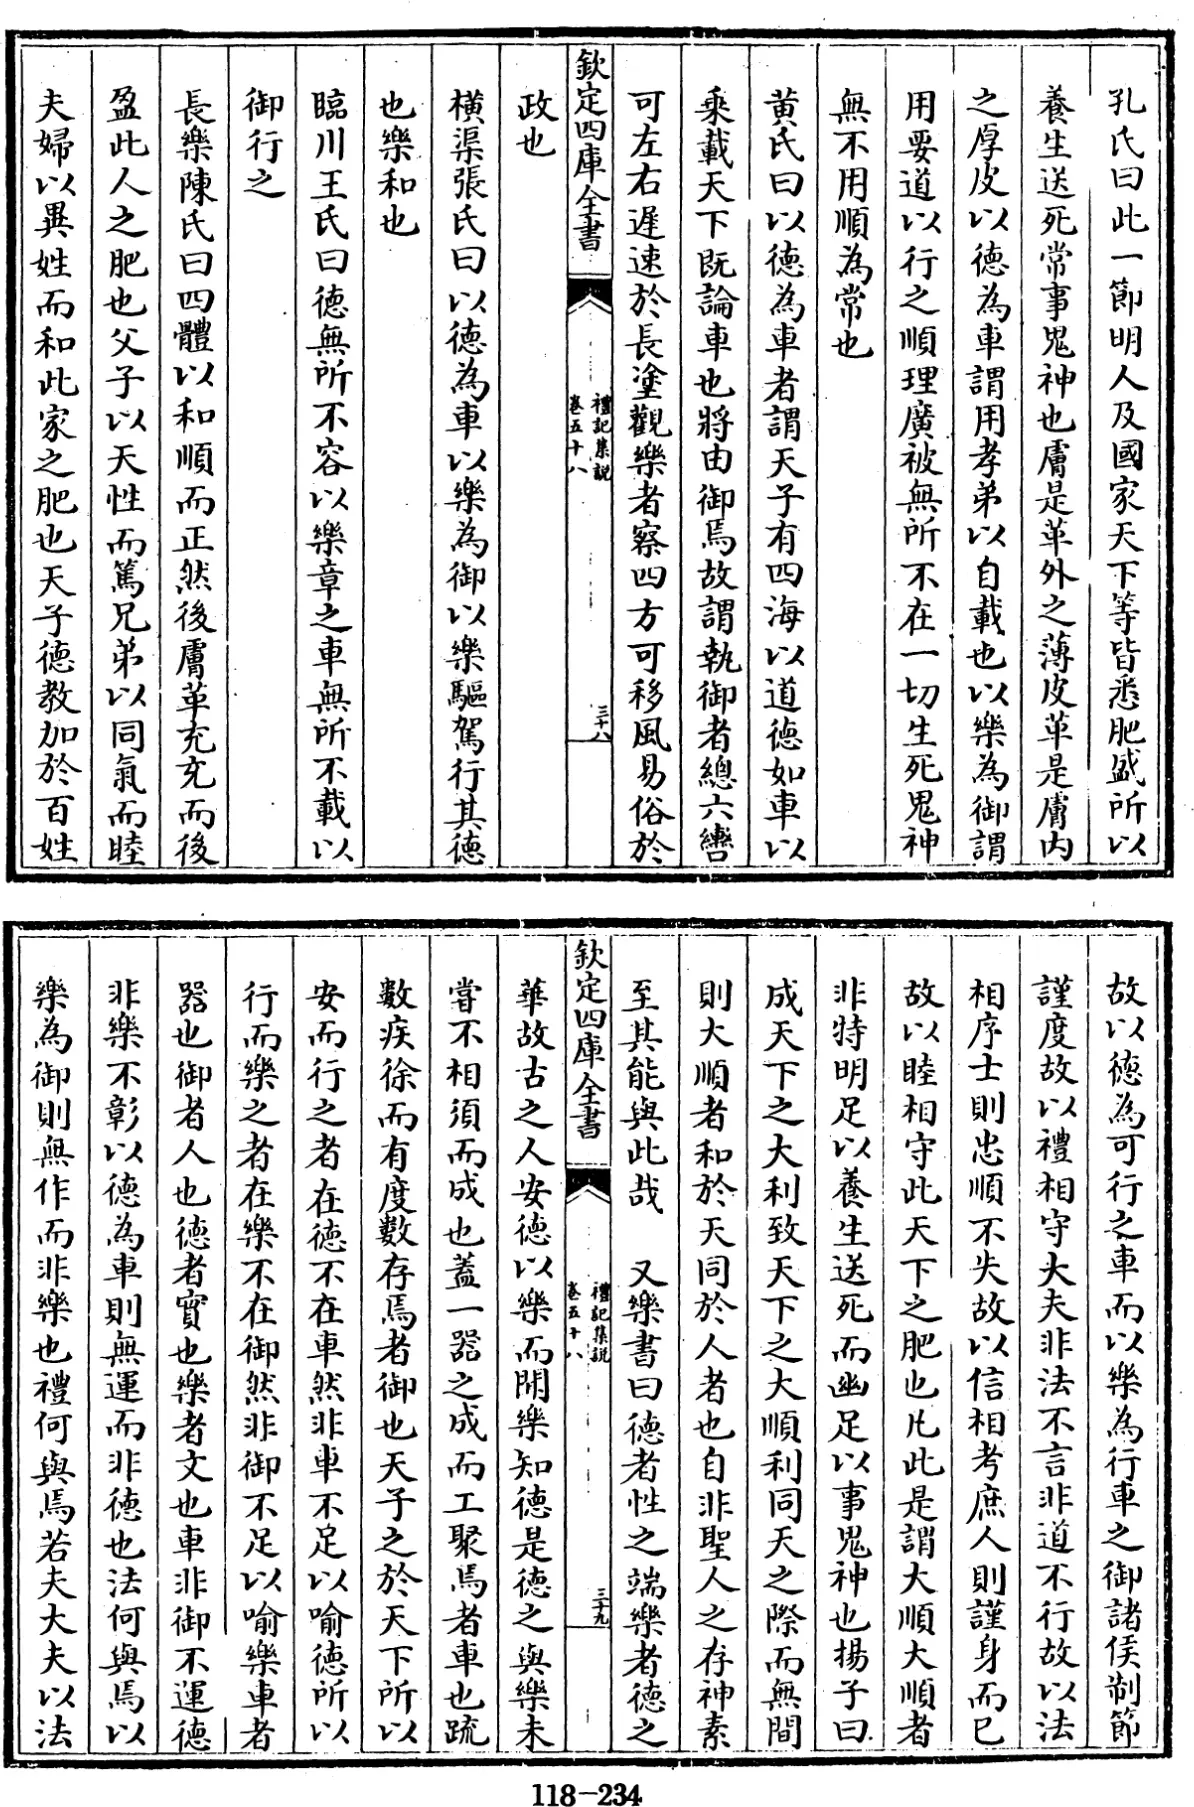 孔氏曰此一節明人及國家天下等皆悉肥盛所以
養生送死常事鬼神也膚是革外之薄皮革是膚内
之厚皮以德為車謂用孝弟以自載也以樂為御謂
用要道以行之順理廣被無所不在一切生死鬼神
無不用順為常也
黄氏曰以德為車者謂天子有四海以道德如車以
乗載天下既論車也將由御焉故謂執御者總六轡
可左右遲速於長塗觀樂者察四方可移風易俗於
欽定四庫全書
禮記集説
卷五十八
三十八
政也
橫渠張氏曰以德為車以樂為御以樂驅駕行其德
也樂和也
臨川王氏曰德無所不容以樂章之車無所不載以
御行之
長樂陳氏曰四體以和順而正然後膚革充充而後
盈此人之肥也父子以天性而篤兄弟以同氣而睦
夫婦以異姓而和此家之肥也天子德教加於百姓
故以德為可行之車而以樂為行車之御諸侯制節
謹度故以禮相守大夫非法不言非道不行故以法
相序士則忠順不失故以信相考庶人則謹身而已
故以睦相守此天下之肥也凡此是謂大順大順者
非特明足以養生送死而幽足以事鬼神也揚子曰
成天下之大利致天下之大順利同天之際而無間
則大順者和於天同於人者也自非聖人之存神素
至其能與此哉　又樂書曰德者性之端樂者德之
欽定四庫全書
禮記集説
卷五十八
三十九
華故古之人安德以樂而閒樂知德是德之與樂未
嘗不相須而成也蓋一器之成而工聚焉者車也疏
數疾徐而有度數存焉者御也天子之於天下所以
安而行之者在德不在車然非車不足以喻德所以
行而樂之者在樂不在御然非御不足以喻樂車者
器也御者人也德者實也樂者文也車非御不運德
非樂不彰以德為車則無運而非德也法何與焉以
樂為御則無作而非樂也禮何與焉若夫大夫以法
118-234